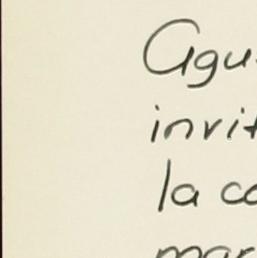 Agu
invit
la co
mar